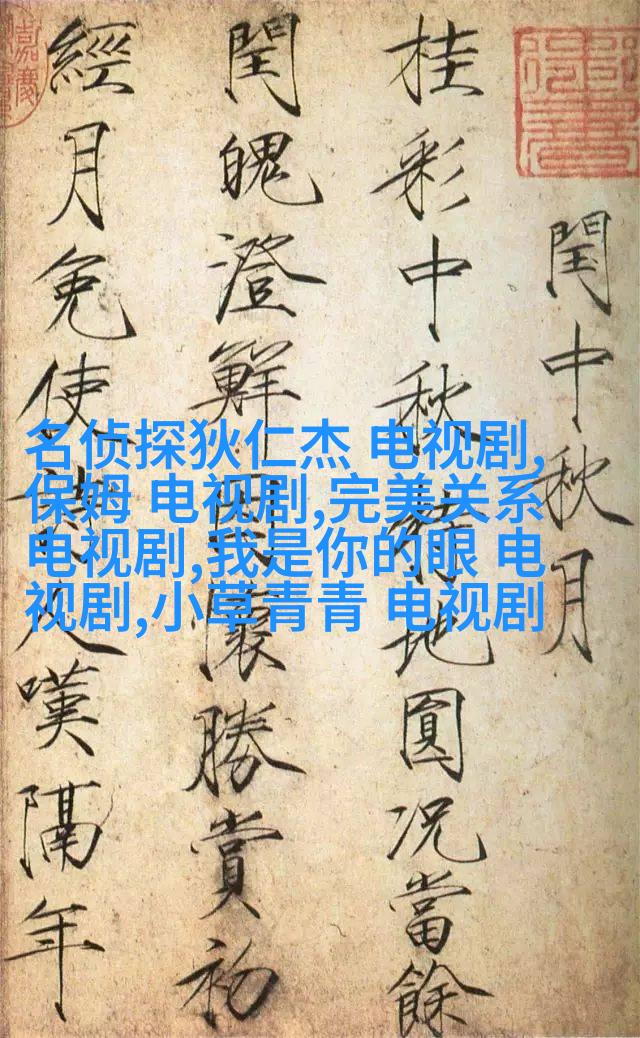 閏中秋月
桂彩中秋地圓况當餘
閏魄澄鮮懷勝賞初
經月免使人嘆隔年
名侦探狄仁杰 电视剧,
保姆 电视剧,完美关系
电视剧,我是你的眼 电
视剧,小草青青 电视剧